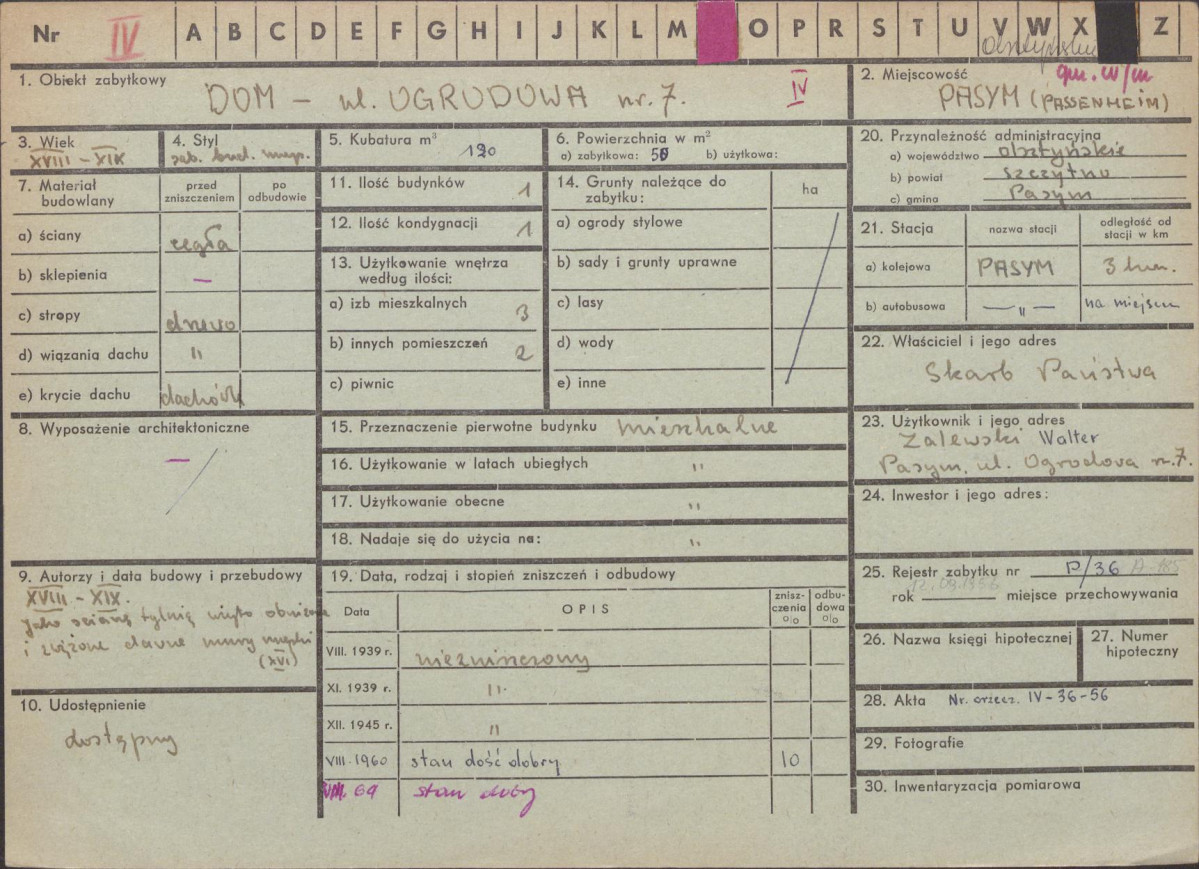 Nr IV A B C D E F G H I J K L M O P R S T U V W X Z
1. Obiekt zabytkowy
DOM – ul. OGRODOWA nr. 7. IV
2. Miejscowość
gm. w/m
PASYM (PASSENHEIM)
3. Wiek
XVIII – XIX
4. Styl
bud.
5. Kubatura m³ 190
6. Powierzchnia w m²
a) zabytkowa: 50 b) użytkowa:
7. Materiał budowlany
przed zniszczeniem
po odbudowie
a) ściany cegła
b) sklepienia —
c) stropy drewno
d) wiązania dachu "
e) krycie dachu
8. Wyposażenie architektoniczne
—
9. Autorzy i data budowy i przebudowy
XVIII – XIX.
Jako ścianę tylną użyto obniżone
i zwężone dawne mury
(XVI)
10. Udostępnienie
dostępny
11. Ilość budynków 1
12. Ilość kondygnacji 1
13. Użytkowanie wnętrza
według ilości:
a) izb mieszkalnych 3
b) innych pomieszczeń 2
c) piwnic
14. Grunty należące do
zabytku:
ha
a) ogrody stylowe
b) sady i grunty uprawne
c) lasy
d) wody
e) inne
15. Przeznaczenie pierwotne budynku mieszkalne
16. Użytkowanie w latach ubiegłych "
17. Użytkowanie obecne "
18. Nadaje się do użycia na: "
19. Data, rodzaj i stopień zniszczeń i odbudowy
Data OPIS znisz-
czenia
o/o odbu-
dowa
o/o
VIII. 1939 r. niezniszczony
XI. 1939 r. "
XII. 1945 r. "
VIII. 1960 stan dość dobry 10
VIII. 69 stan dobry
20. Przynależność administracyjna
a) województwo olsztyńskie
b) powiat Szczytno
c) gmina Pasym
21. Stacja
nazwa stacji
odległość od
stacji w km
a) kolejowa PASYM 3 km.
b) autobusowa — " — na miejscu
22. Właściciel i jego adres
Skarb Państwa
23. Użytkownik i jego adres
Zalewski Walter
Pasym, ul. Ogrodova nr. 7.
24. Inwestor i jego adres:
25. Rejestr zabytku nr P/36 A-185
12.09.1956
rok miejsce przechowywania
26. Nazwa księgi hipotecznej
27. Numer
hipoteczny
28. Akta Nr. orzecz. IV-36-56
29. Fotografie
30. Inwentaryzacja pomiarowa